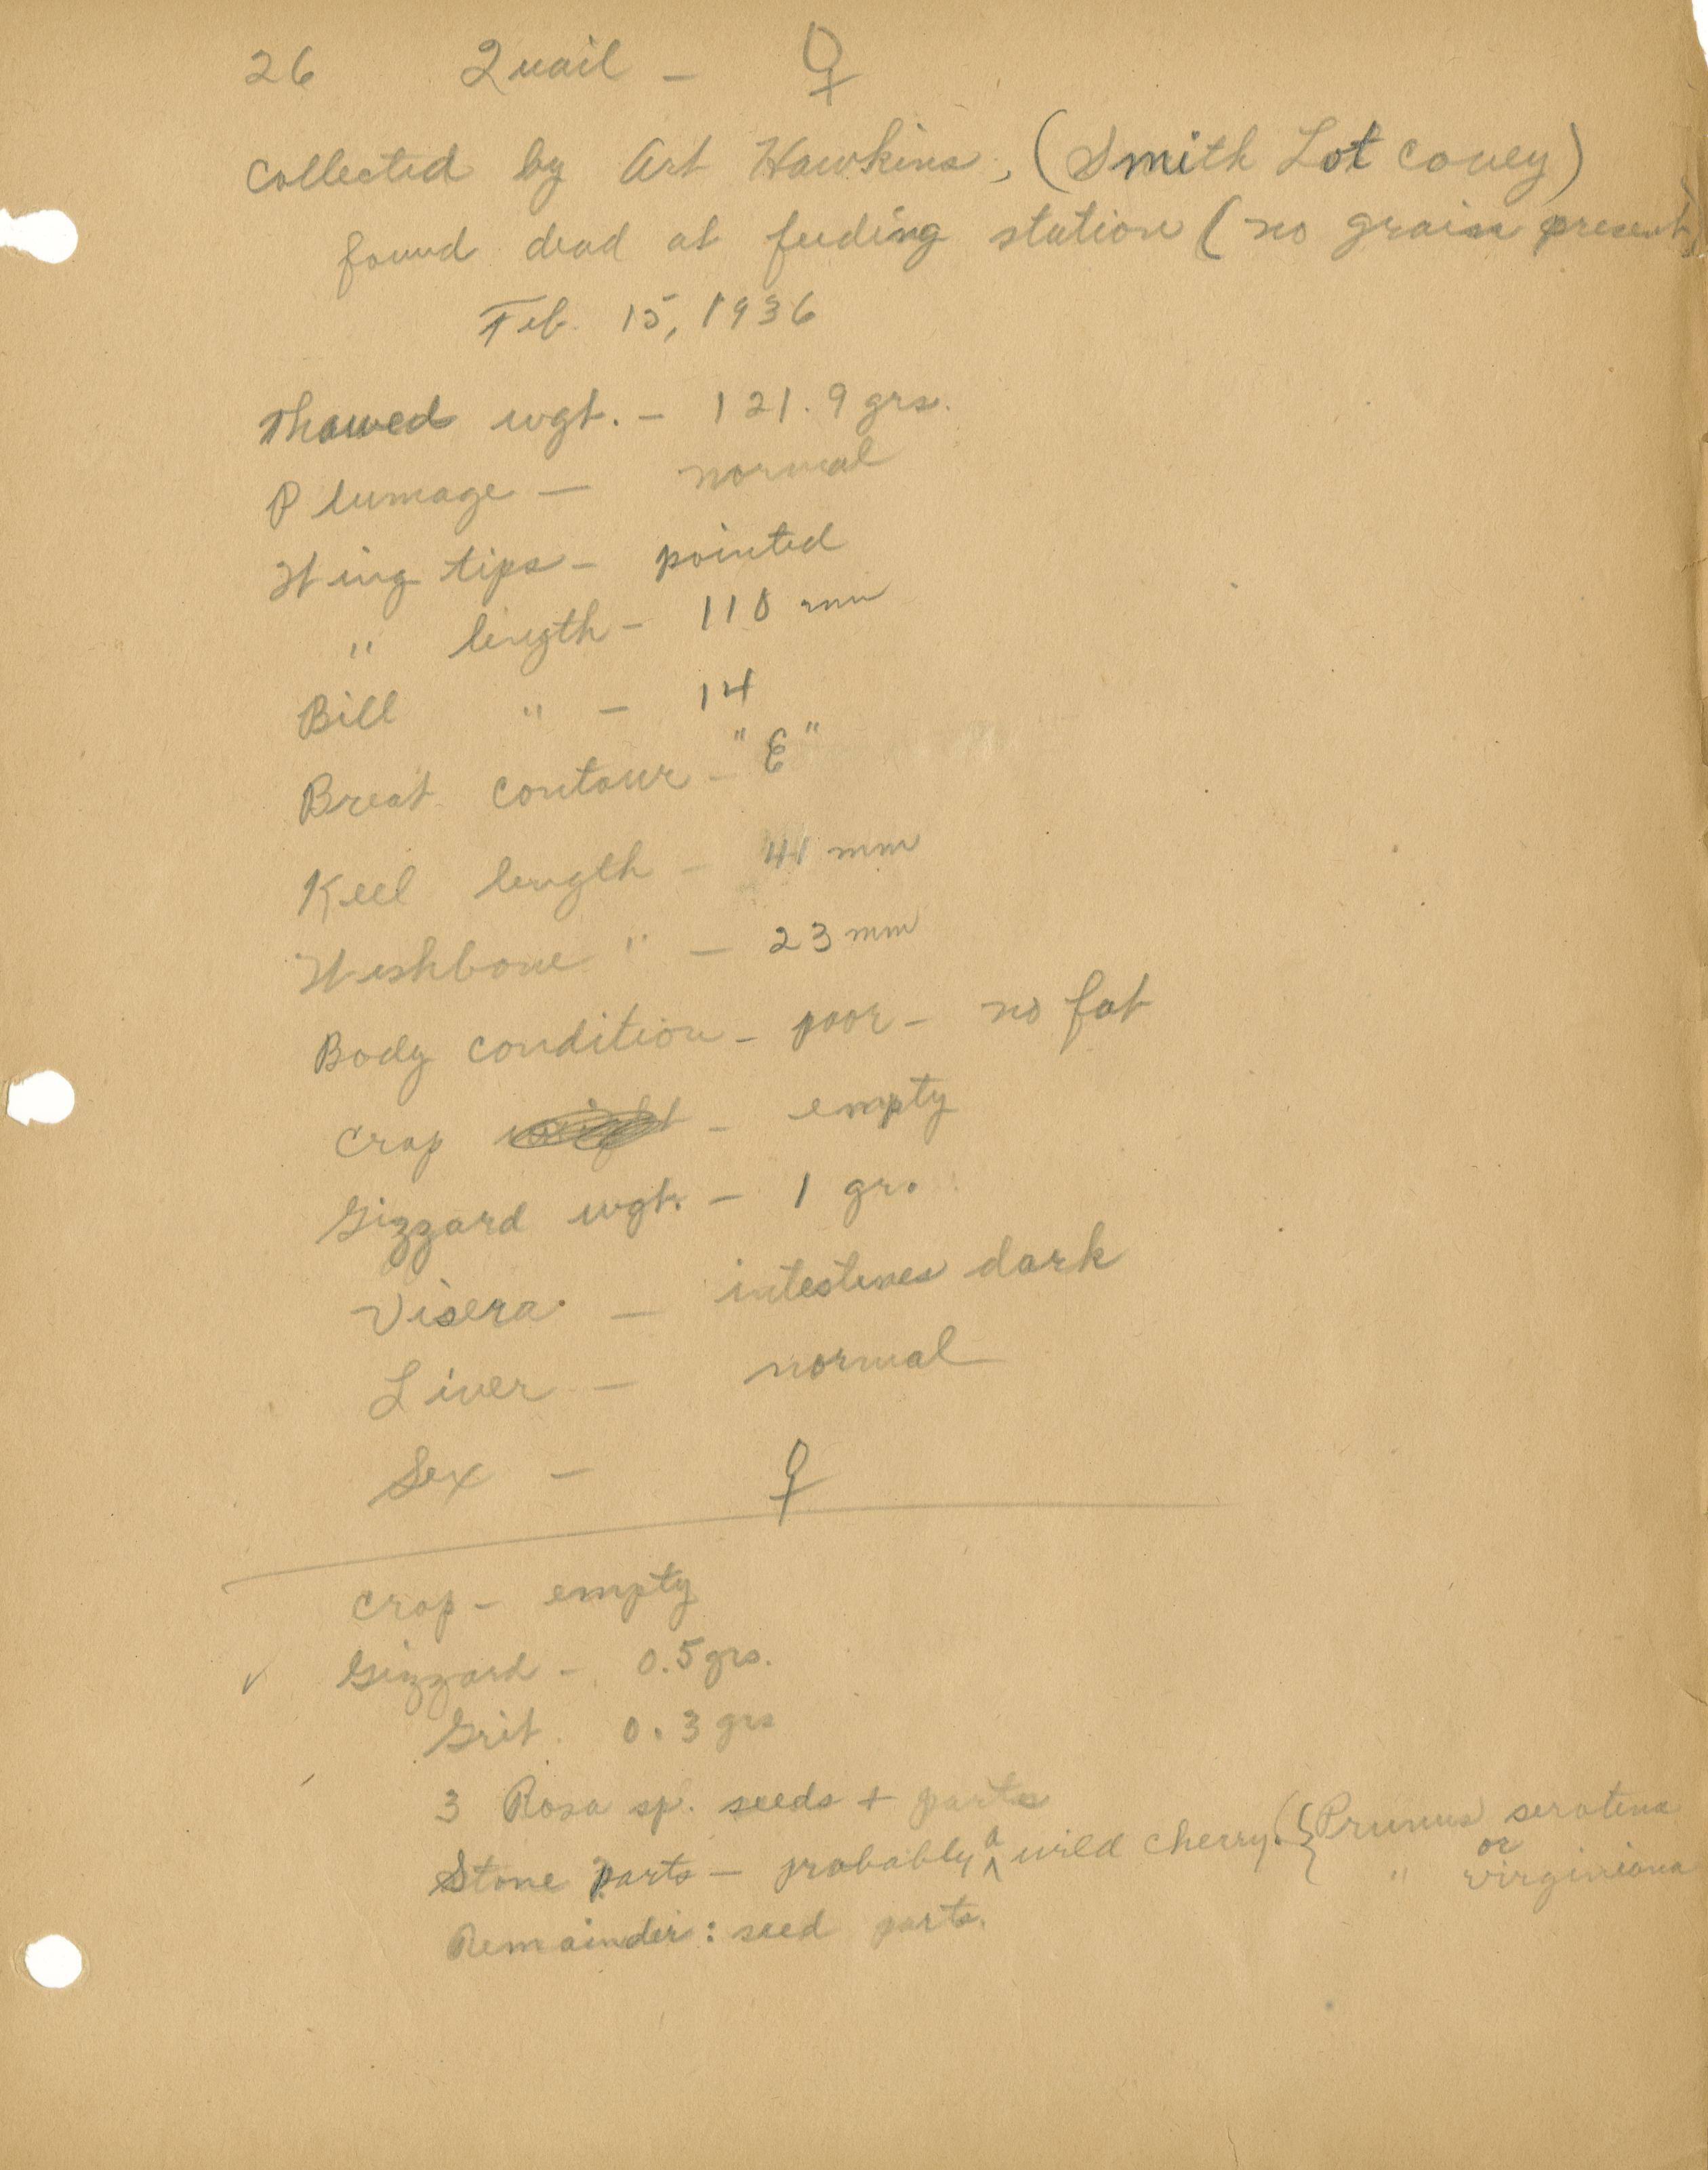 26 Quail - ♀
Collected by Art Hawkins, (Smith Lot covey)
found dead at feeding station (no grain present)
Feb. 15, 1936
Thawed wgt. - 121.9 grs.
Plumage - normal
Wing tips - pointed
" length - 110 mm
Bill " - 14
Breat contour - "E"
Keel length - 41 mm
Wishbone " - 23 mm
Body condition - poor - no fat
Crop - empty
Gizzard wgt. - 1 gr.
Visera - intestines dark
Liver - normal
Sex - ♀
Crop - empty
✓ Gizzard - 0.5 grs.
Grit 0.3 grs
3 Rosa sp. seeds + parts
Stone parts - probably a wild cherry. ({Prunus serotina
or
" virginiana
Remainder: seed parts.